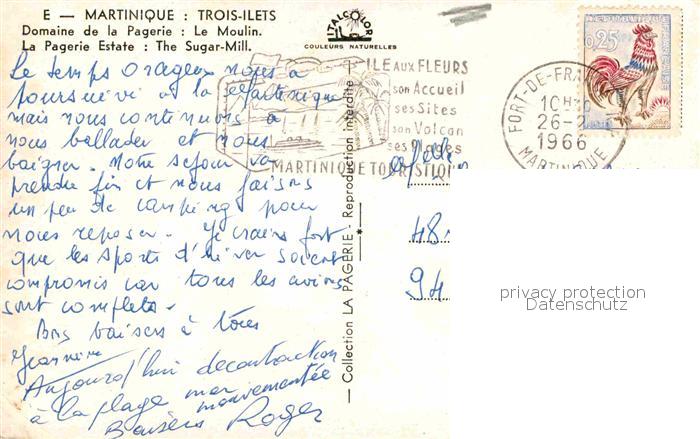 E — MARTINIQUE : TROIS-ILETS
Domaine de la Pagerie : Le Moulin.
La Pagerie Estate : The Sugar-Mill.
ITALCOLOR
COULEURS NATURELLES
Le temps orageux nous a
poursuivi à la Martinique
mais nous continuons à
nous ballader et nous
baigner. Notre séjour va
prendre fin et nous faisons
un peu de camping pour
nous reposer. Je crains fort
que les sports d'hiver soient
compromis car tous les avions
sont complets.
Bons baisers à tous
Jeannine
Aujourd'hui decontraction
à la plage mer mouvementée
Baisers Roger
— Collection LA PAGERIE - Reproduction interdite —
ILE AUX FLEURS
son Accueil
ses Sites
son Volcan
ses Plages
MARTINIQUE TOURISTIQUE
0,25
FORT-DE-FRANCE
10H30
26-2
1966
MARTINIQUE
48
94
privacy protection
Datenschutz